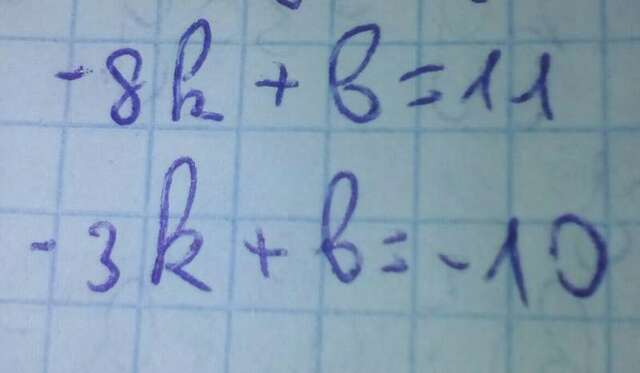 -8k + b = 11
-3k + b = -10